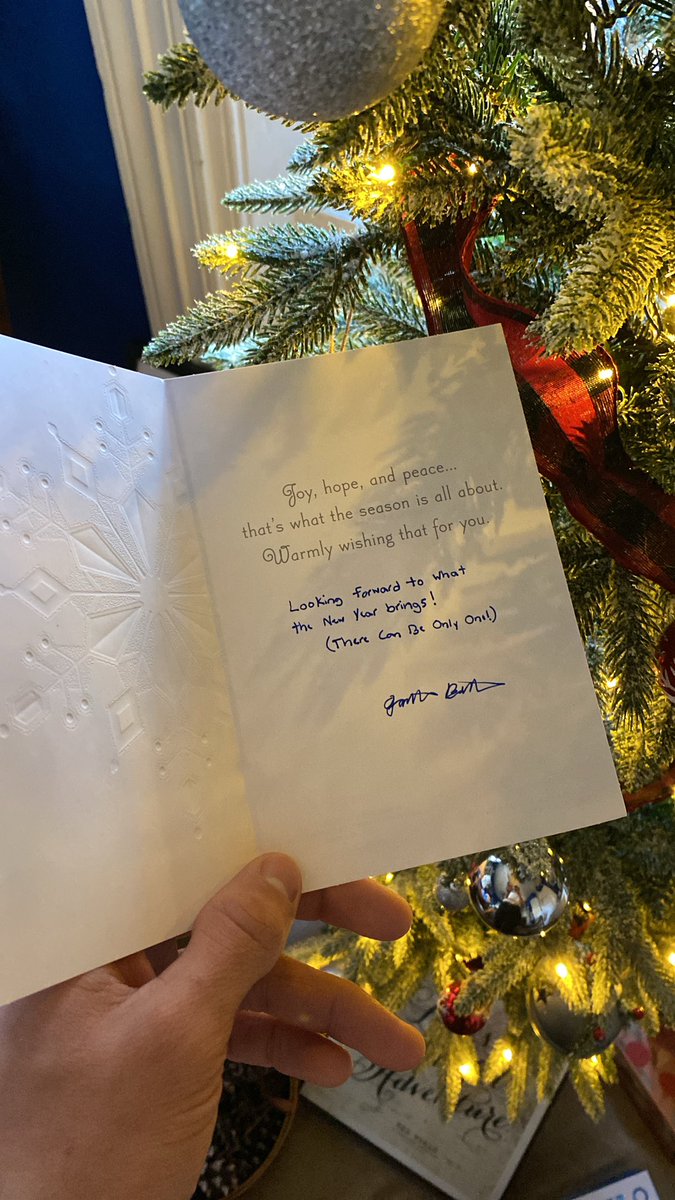 Joy, hope, and peace...
that's what the season is all about.
Warmly wishing that for you.
Looking forward to what
the New Year brings!
(There Can Be Only One!)
Adventure